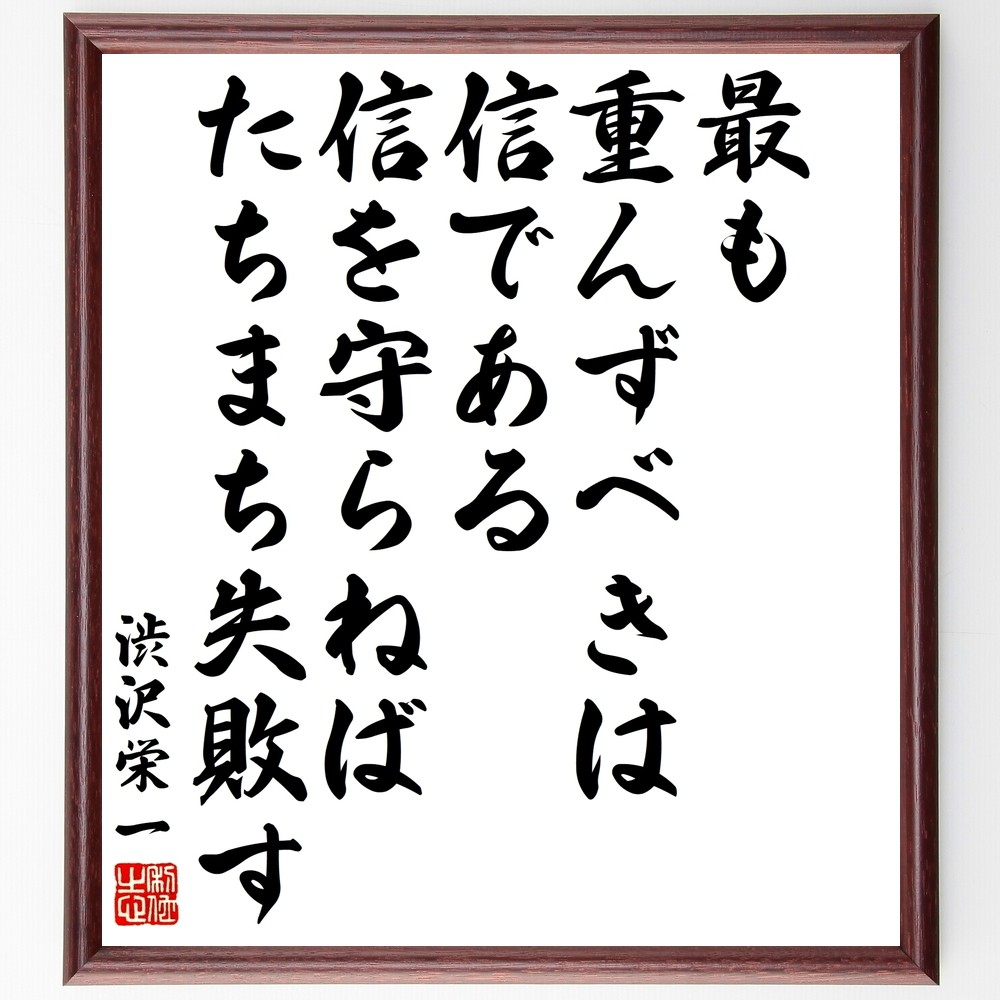 最も
重んずべきは
信である
信を守らねば
たちまち失敗す
渋沢栄一